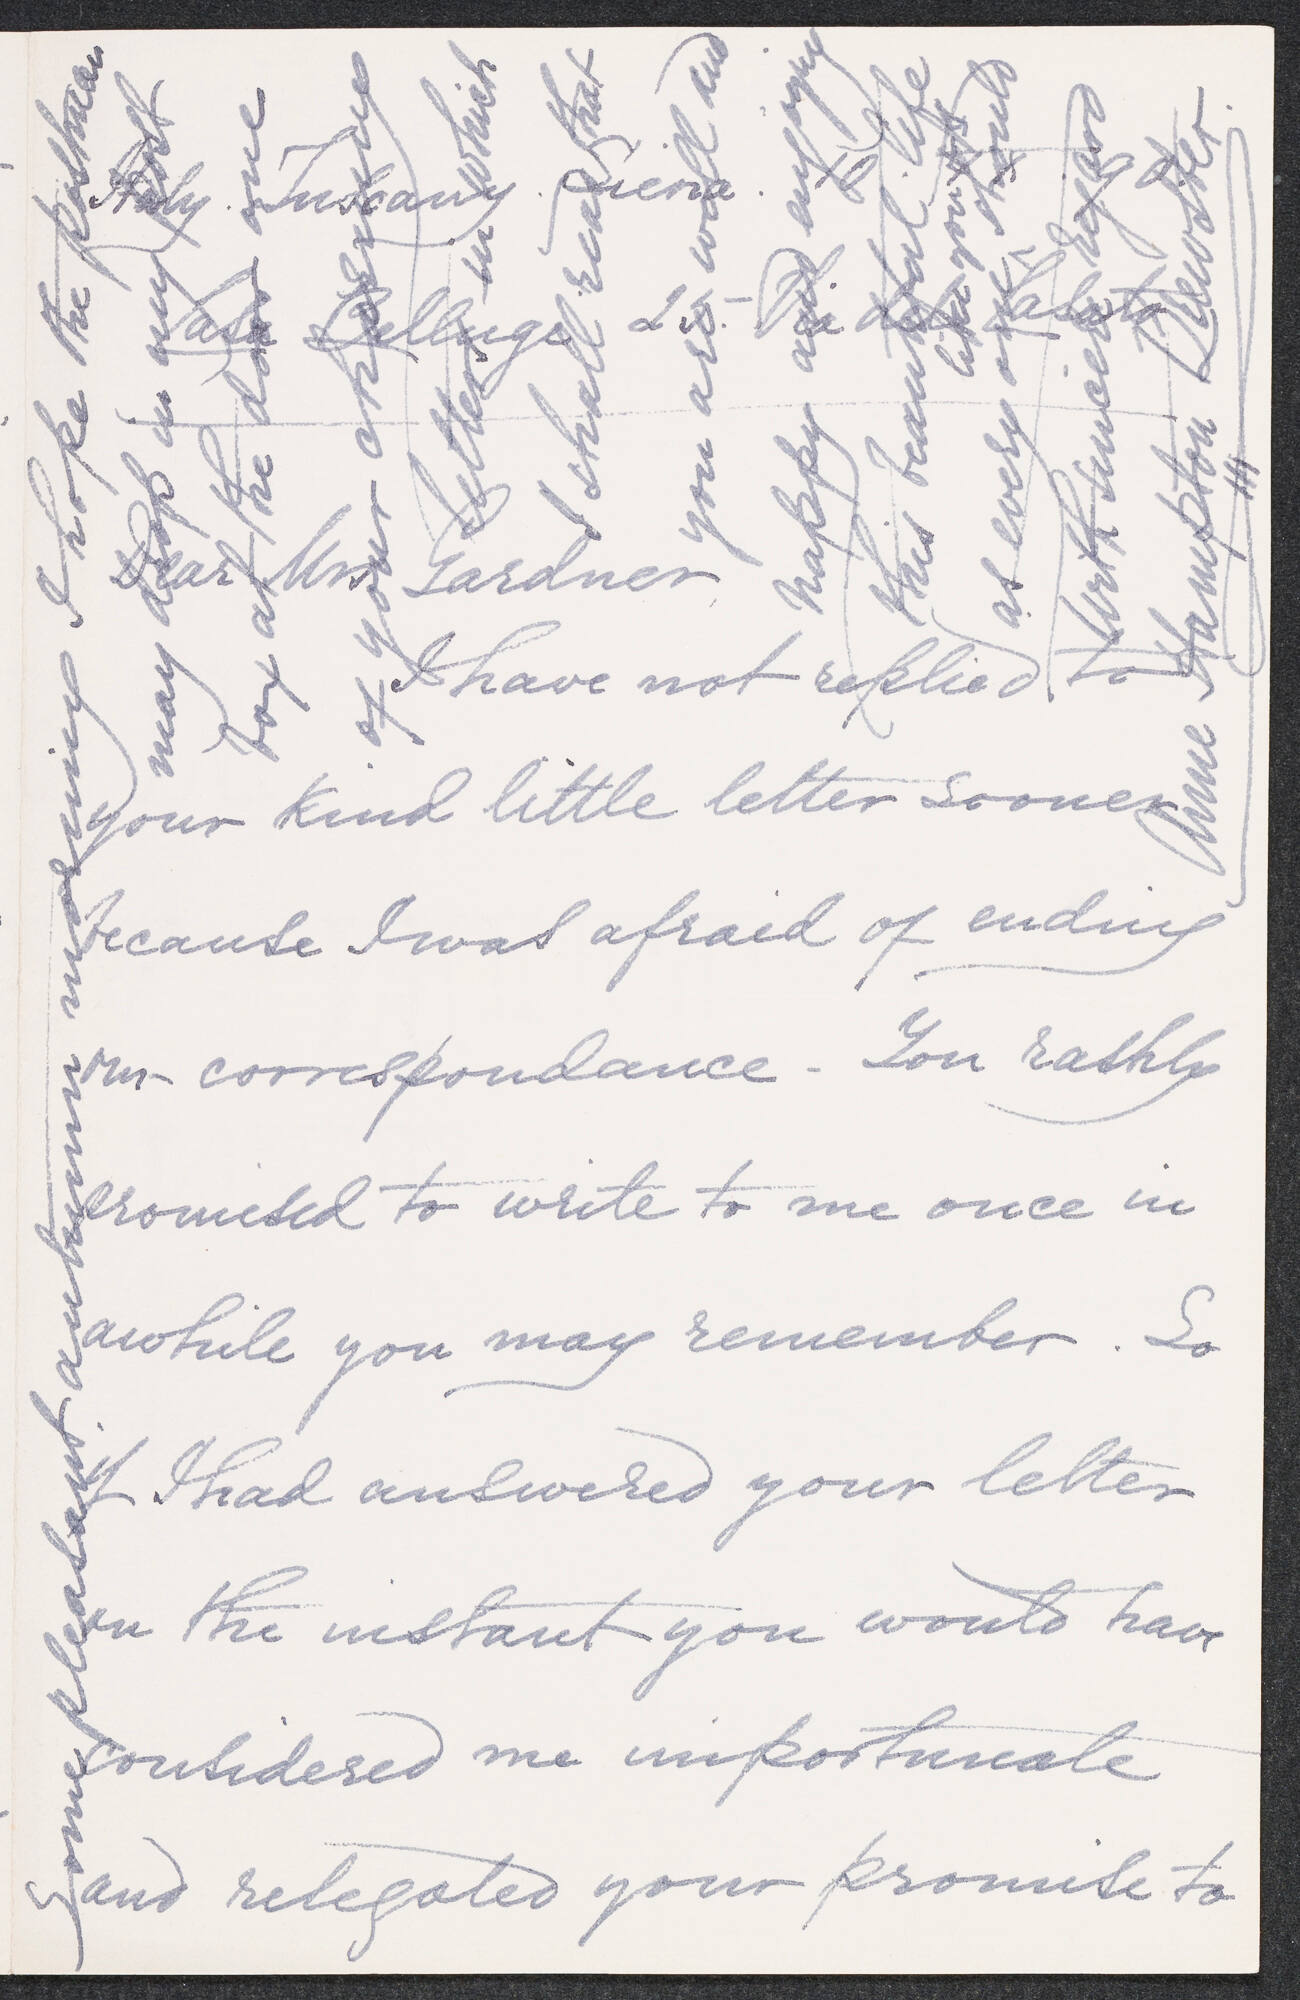 Italy. Tuscany. Siena.
Casa Bellugi 25.
Dear Mrs Gardner
I have not replied to
your kind little letter sooner
because I was afraid of ending
our correspondance - You rashly
promised to write to me once in
awhile you may remember. So
if I had answered your letter
on the instant you would have
considered me importunate
and relegated your promise to
Some pleasant autumn morning I hope the postman
may drop in my post
box at the door one
of your charming
letters in which
I shall read that
you are well and
happy and enjoying
this beautiful life
as every one should
like you
forth
Anne Hampton Brewster.